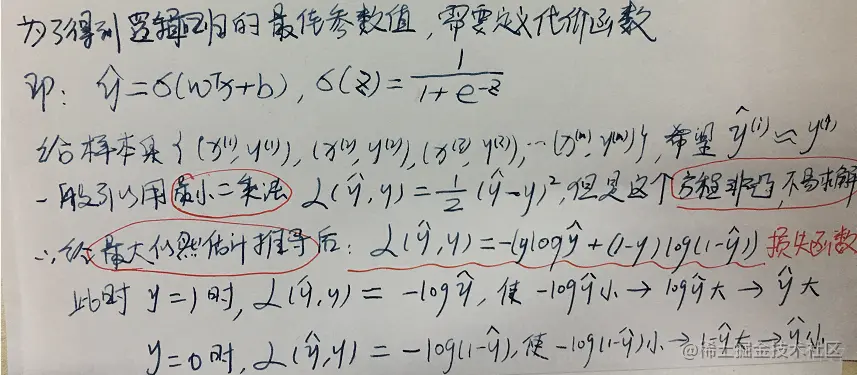 为了得到逻辑回归的最佳参数值,需要定义代价函数
即: ŷ=σ(wᵀx+b), σ(z)=1/(1+e^-z)
给样本集{(x⁽¹⁾,y⁽¹⁾),(x⁽²⁾,y⁽²⁾),(x⁽³⁾,y⁽³⁾),…(x⁽ᵐ⁾,y⁽ᵐ⁾)},希望 ŷ⁽ⁱ⁾≈y⁽ⁱ⁾
一般可以用最小二乘法 L(ŷ,y)=1/2(ŷ-y)²,但是这个方程非凸,不易求解
∴经最大似然估计推导后: L(ŷ,y)=-(ylogŷ+(1-y)log(1-ŷ)) 损失函数
此时 y=1时, L(ŷ,y)=-logŷ, 使 -logŷ小→logŷ大→ŷ大
y=0时, L(ŷ,y)=-log(1-ŷ), 使 -log(1-ŷ)小→1-ŷ大→ŷ小
@稀土掘金技术社区